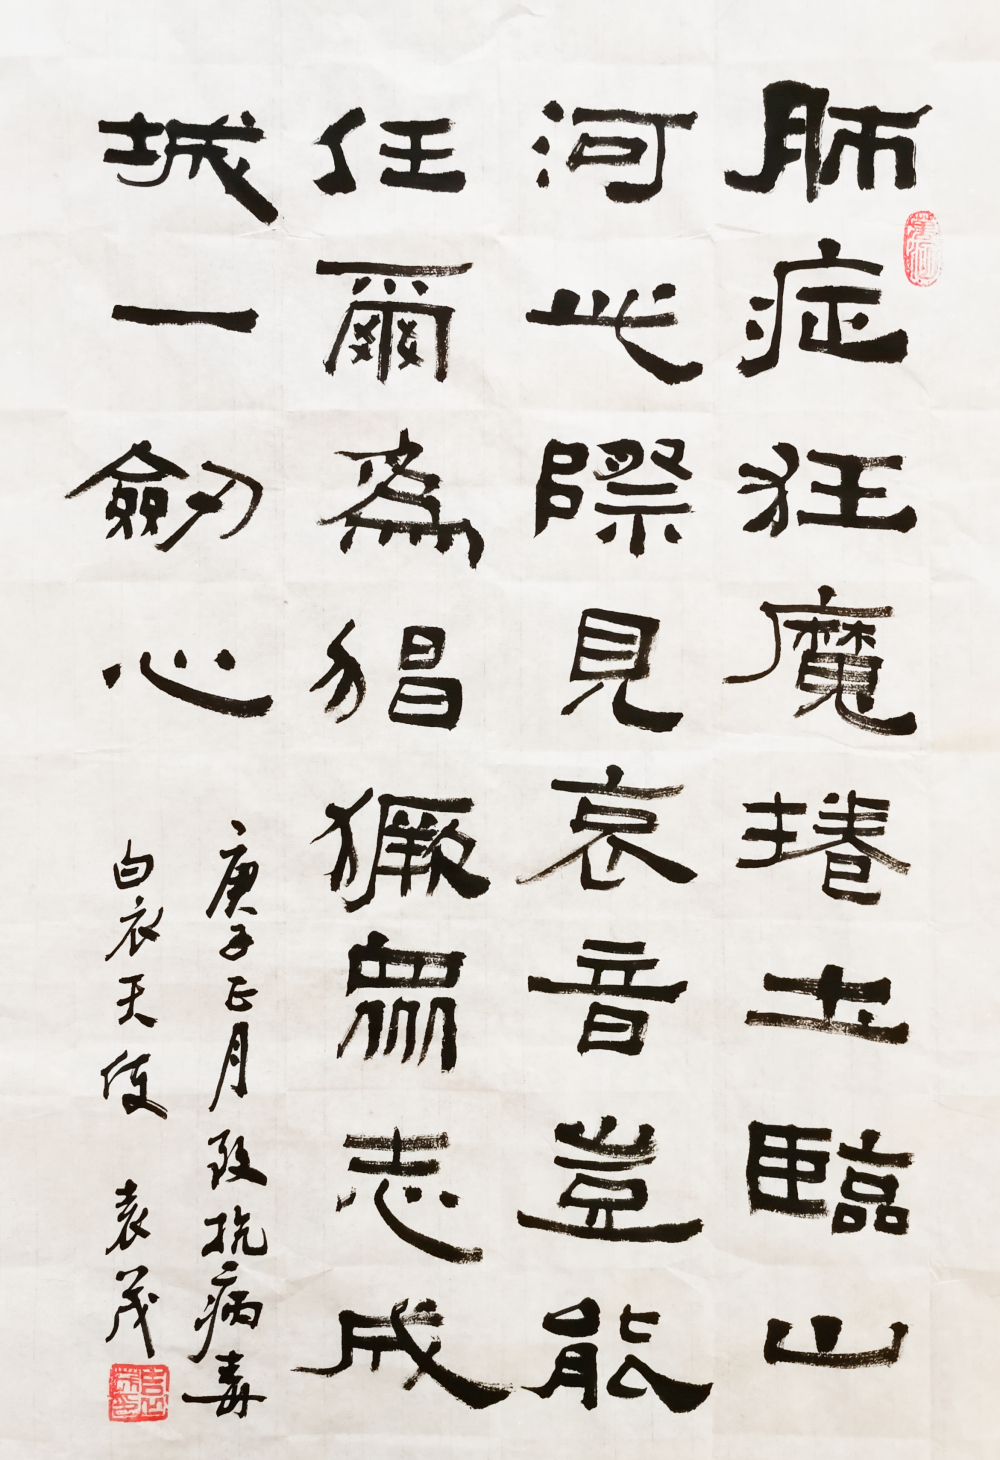 肺症狂魔捲土臨山
河此際見哀音豈能
任爾為猖獗眾志成
城一劍心
庚子正月致抗病毒
白衣天使 袁茂